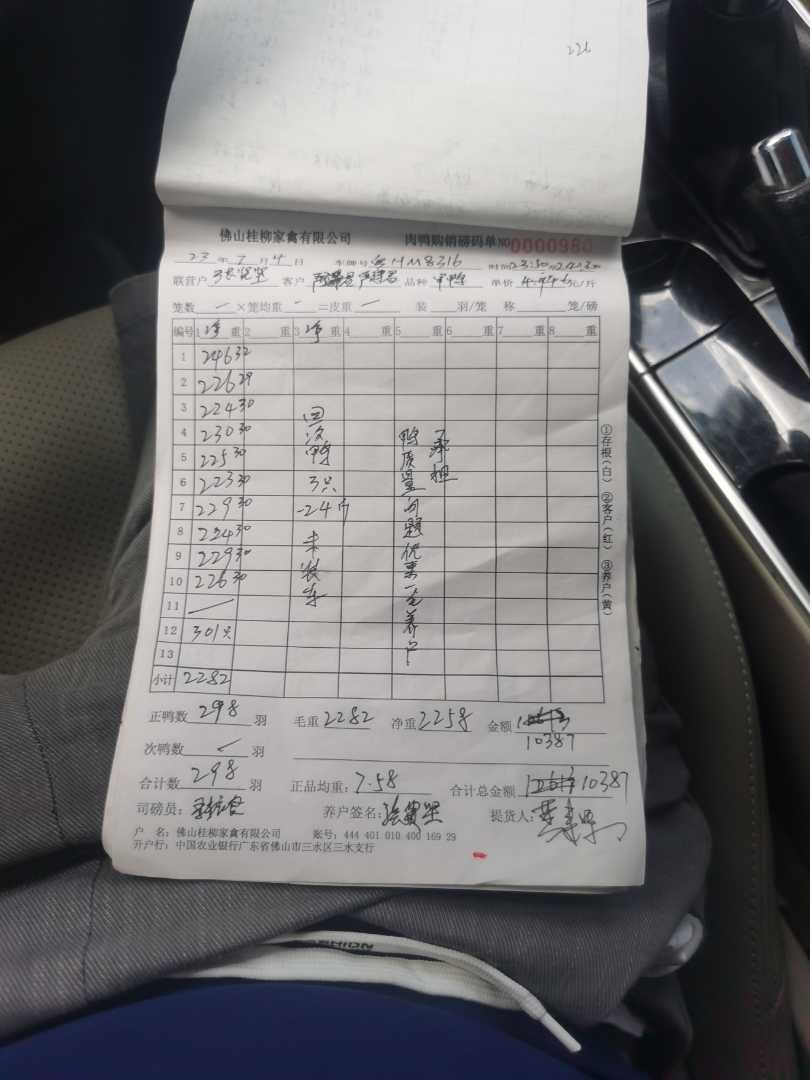 226
佛山桂柳家禽有限公司 肉鸭购销磅码单 NO 0000980
23年7月4日 车牌号 HM8316 时间23:50
联营户 客户 品种 单价 元/斤
笼数 一 ×笼均重 一 =皮重 一 装 羽/笼 称 笼/磅
编号 1 净 重 2 重 3 净 重 4 重 5 重 6 重 7 重 8 重
1 246 32
2 226 29
3 224 30
4 230 30
5 225 30
6 223 30
7 229 30
8 224 30
9 229 30
10 226 30
11
12 301只
13
小计 2282
回次鸭
3只
-24斤
未装车
鸭质量问题
养户
承担
①存根(白) ②客户(红) ③养户(黄)
正鸭数 298 羽 毛重 2282 净重 2258 金额
10387
次鸭数 羽
合计数 298 羽 正品均重: 7.58 合计总金额 10387
司磅员: 养户签名: 提货人:
户 名: 佛山桂柳家禽有限公司 账号: 444 401 010 400 169 29
开户行: 中国农业银行广东省佛山市三水区三水支行
SHION